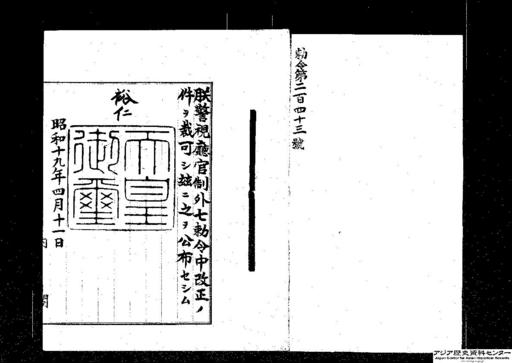 勅令第二百四十三號
朕警視廳官制外七勅令中改正ノ
件ヲ裁可シ玆ニ之ヲ公布セシム
裕仁
天皇
御璽
昭和十九年四月十一日
内
閣
アジア歴史資料センター
Japan Center for Asian Historical Records